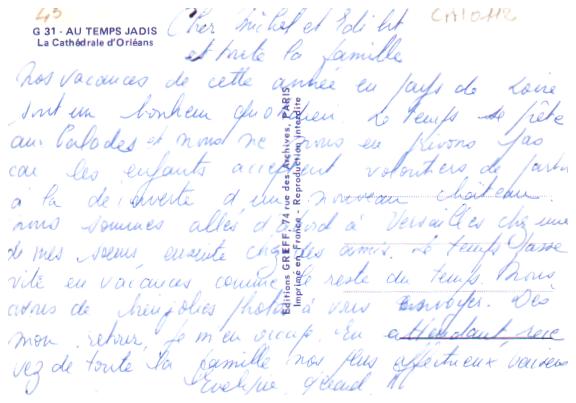 45
CA10112
G 31 - AU TEMPS JADIS
La Cathédrale d'Orléans
Cher Michel et Edith
et toute la famille
Nos vacances de cette année en pays de Loire
sont un bonheur quotidien. Le temps se prête
aux balades et nous ne nous en privons pas
car les enfants acceptent volontiers de partir
à la découverte d'un nouveau château.
nous sommes allés d'abord à Versailles chez une
de mes soeurs ensuite chez des amis. Le temps passe
vite en vacances comme le reste du temps. Nous
avons de bien jolies photos à vous envoyer. Dès
mon retour, je m'en occupe. En attendant rece
vez de toute la famille nos plus affectueux baisers
Evelyne Gérard
Editions GREFF, 74 rue des Archives, PARIS
Imprimé en France - Reproduction interdite